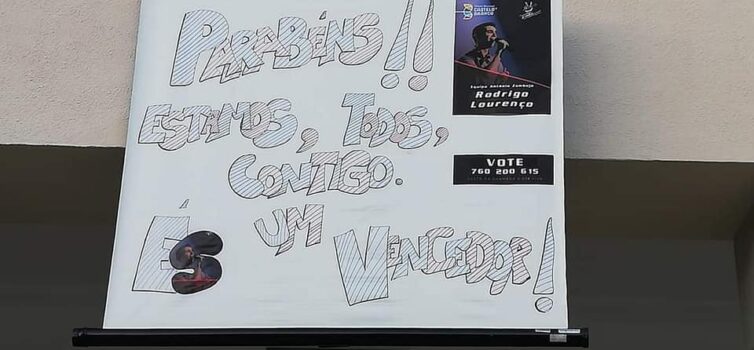 PARABÉNS!!
CASTELO
BRANCO
Equipa António Zambujo
Rodrigo
Lourenço
ESTAMOS, TODOS,
CONTIGO.
VOTE
760 200 615
ÉS UM VENCEDOR!